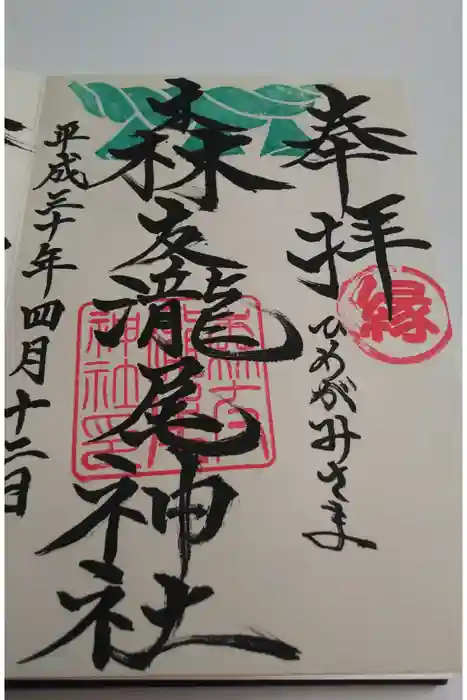 奉拝
縁
ひめがみさま
森友瀧尾神社
平成三十年四月十二日